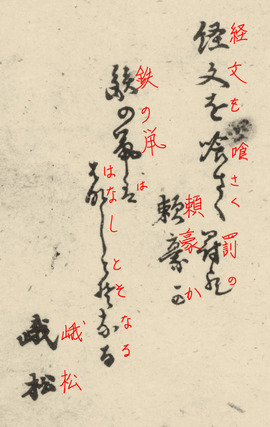 経文を喰さく罰の
頼豪か
鉄の鼠は
はなしとそなる
峨松